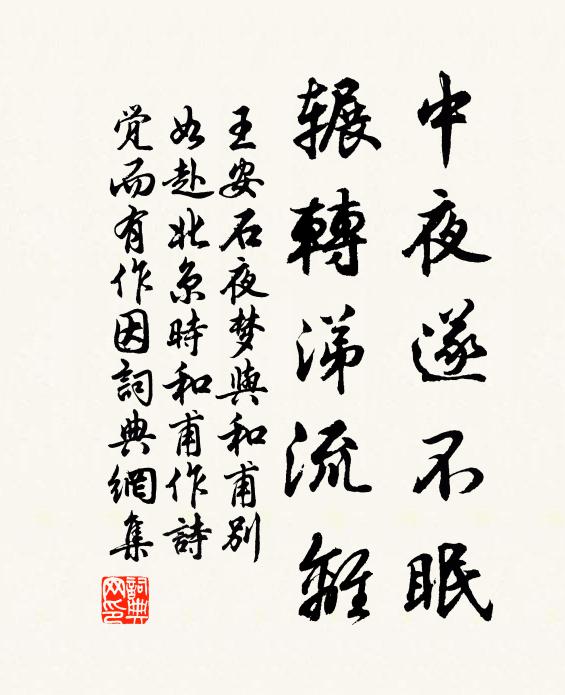 中夜遂不眠
辗轉涕流離
王安石夜梦與和甫別
如赴北京時和甫作詩
觉而有作因詞典網集
詞典网印